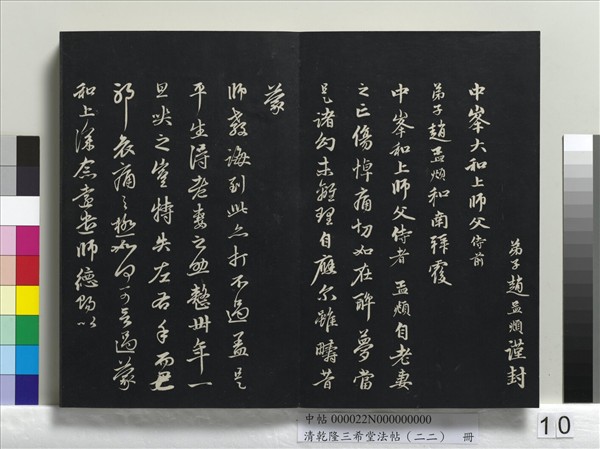 弟子趙孟頫謹封
中峯大和上師父侍前
弟子趙孟頫和南拜覆
中峯和上師父侍者孟頫自老妻
之亡傷悼痛切如在醉夢當
是諸幻未離理自應爾雖疇昔
蒙
師教誨到此亦打不過蓋是
平生得老妻之助整卅年一
旦哭之豈特失左右手而已
耶哀痛之極如何可言過蒙
和上深念師德賜以
中帖 000022N000000000
清乾隆三希堂法帖(二二) 冊
10